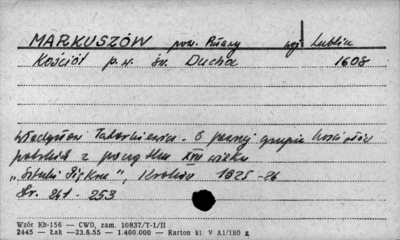 MARKUSZÓW pow. Puławy woj. Lublin
Kościół p.w. św. Ducha 1608
Władysław Tatarkiewicz. O pewnej grupie kościołów
polskich z początku XVII wieku
"Sztuki Piękne", Kraków 1925-26
Str. 241-253
Wzór Kb-156 — CWD, zam. 10837/T-1/II
2445 — Łak —23.8.55 — 1.460.000 — Karton kl. V A1/180 g